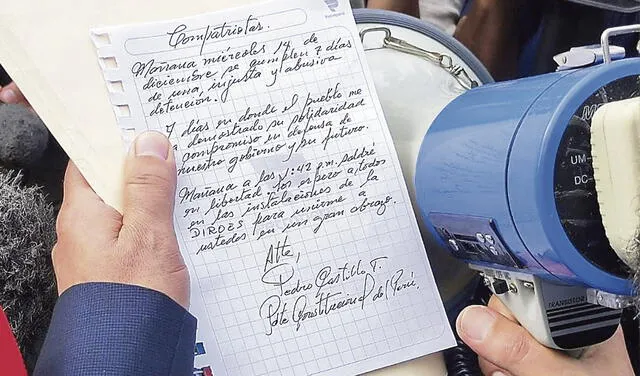 Compatriotas.
Mañana miércoles 14 de
diciembre se cumplen 7 días
de una, injusta y abusiva
detención.
7 días en donde el pueblo me
a demostrado su solidaridad
compromiso en defensa de
nuestro gobierno y su futuro.
Mañana a las 1:42 p.m. saldré
en libertad los espero a todos
en las instalaciones de la
DIROES para unirme a
ustedes en un gran abrazo.
Atte,
Pedro Castillo T.
Pdte Constitucional del Perú.
UM
DC
TRANSISTOR